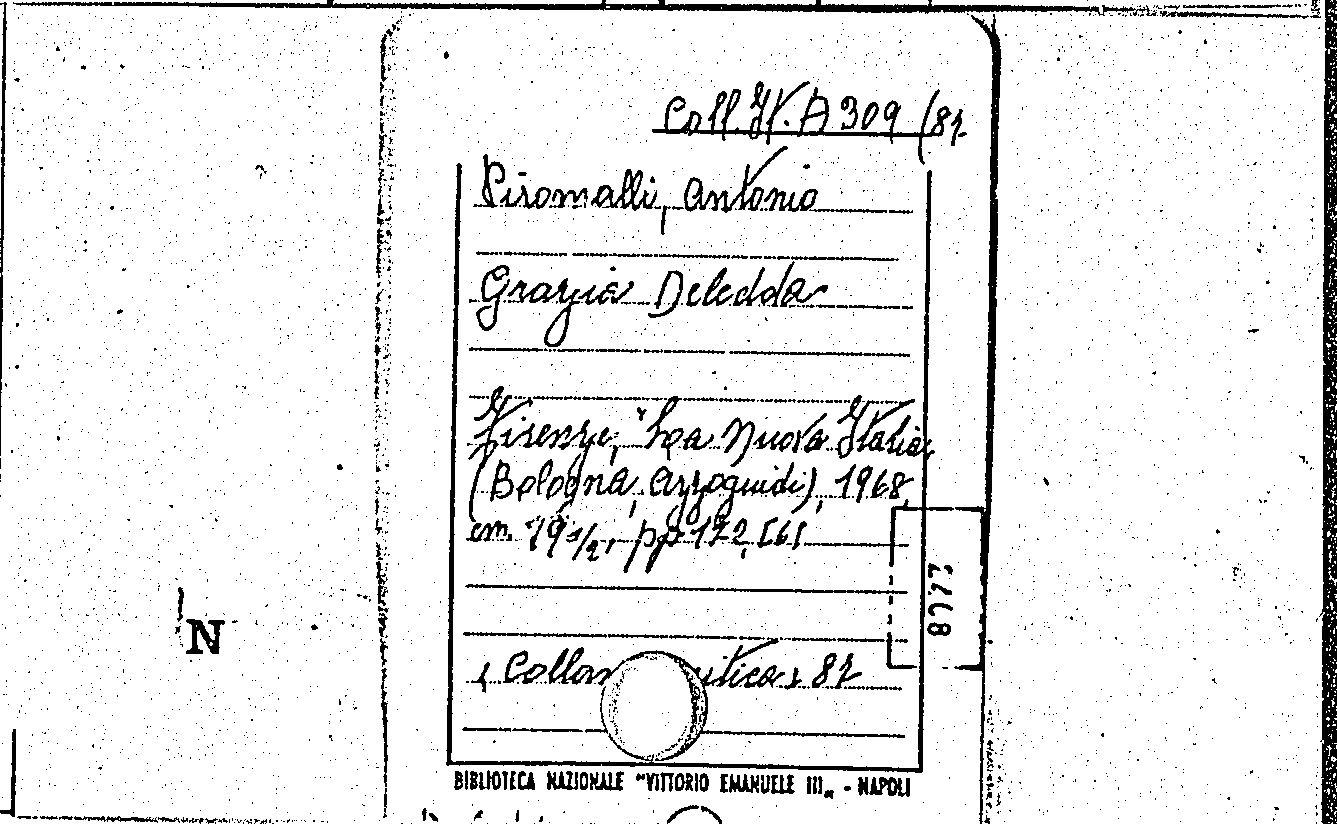 Coll. It. A 309 (82
Piromalli, Antonio
Grazia Deledda
Firenze, "La Nuova Italia,
(Bologna, Azzoguidi), 1968,
cm. 19 1/2, pp 172, [6]
(Collan itica) 82
8073
N
BIBLIOTECA NAZIONALE "VITTORIO EMANUELE III„ - NAPOLI